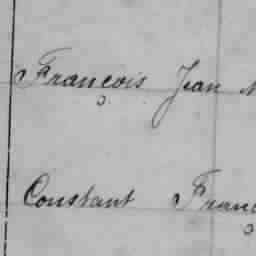 François Jean
Constant Franç